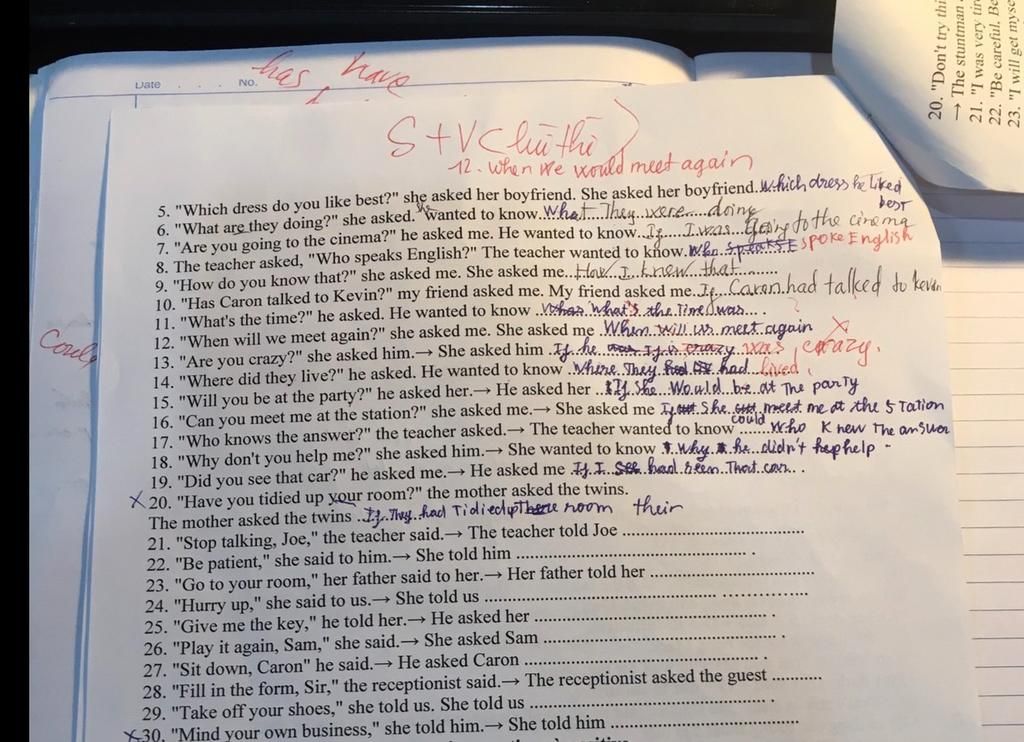 Date No. has have
S + V (lùi thì)
12. when we would meet again
5. "Which dress do you like best?" she asked her boyfriend. She asked her boyfriend. Which dress he liked best
6. "What are they doing?" she asked. she wanted to know What They were doing
7. "Are you going to the cinema?" he asked me. He wanted to know If I was going to the cinema
8. The teacher asked, "Who speaks English?" The teacher wanted to know. Who speaks E spoke English
9. "How do you know that?" she asked me. She asked me How I knew that
10. "Has Caron talked to Kevin?" my friend asked me. My friend asked me If Caron had talked to kevin
11. "What's the time?" he asked. He wanted to know What's the time was
12. "When will we meet again?" she asked me. She asked me When will us meet again
13. "Are you crazy?" she asked him.→ She asked him If he was If is crazy was crazy.
14. "Where did they live?" he asked. He wanted to know Where They had had lived
15. "Will you be at the party?" he asked her.→ He asked her If She Would be at The party
16. "Can you meet me at the station?" she asked me.→ She asked me If She could meet me at the station
17. "Who knows the answer?" the teacher asked.→ The teacher wanted to know Who Knew The answer
18. "Why don't you help me?" she asked him.→ She wanted to know Why he didn't hep help
19. "Did you see that car?" he asked me.→ He asked me If I See had seen That car
X 20. "Have you tidied up your room?" the mother asked the twins.
The mother asked the twins If They had Tidied up There room their
21. "Stop talking, Joe," the teacher said.→ The teacher told Joe
22. "Be patient," she said to him.→ She told him
23. "Go to your room," her father said to her.→ Her father told her
24. "Hurry up," she said to us.→ She told us
25. "Give me the key," he told her.→ He asked her
26. "Play it again, Sam," she said.→ She asked Sam
27. "Sit down, Caron" he said.→ He asked Caron
28. "Fill in the form, Sir," the receptionist said.→ The receptionist asked the guest
29. "Take off your shoes," she told us. She told us
X 30. "Mind your own business," she told him.→ She told him
20. "Don't try thi
→ The stuntman
21. "I was very tir
22. "Be careful. Be
23. "I will get myse